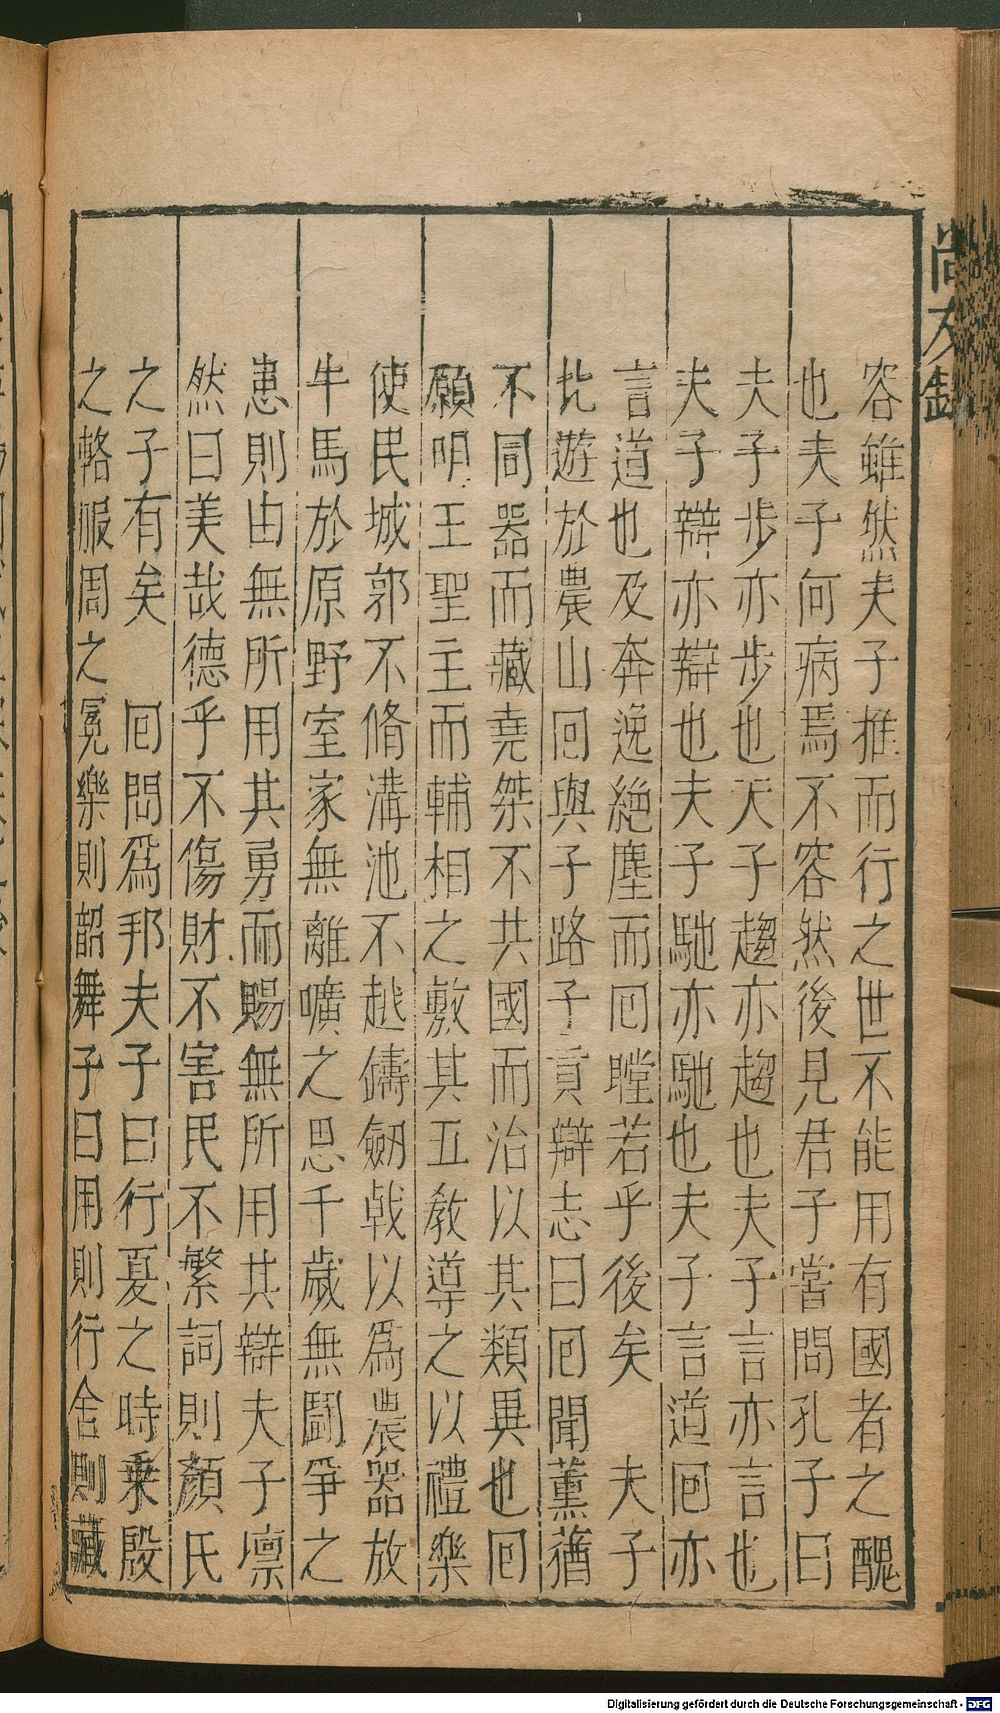 尚友錄
容雖然夫子推而行之世不能用有國者之醜
也夫子何病焉不容然後見君子嘗問孔子曰
夫子步亦步也夫子趨亦趨也夫子言亦言也
夫子辯亦辯也夫子馳亦馳也夫子言道囘亦
言道也及奔逸絶塵而囘瞠若乎後矣　夫子
北遊於農山囘與子路子貢辯志曰囘聞薰蕕
不同器而藏堯桀不共國而治以其類異也囘
願明王聖主而輔相之敷其五教導之以禮樂
使民城郭不脩溝池不越鑄劒戟以爲農器放
牛馬於原野室家無離曠之思千歲無鬭爭之
患則由無所用其勇而賜無所用其辯夫子凛
然曰美哉德乎不傷財不害民不繁詞則顏氏
之子有矣　囘問爲邦夫子曰行夏之時乗殷
之輅服周之冕樂則韶舞子曰用則行舍則藏
Digitalisierung gefördert durch die Deutsche Forschungsgemeinschaft - DFG